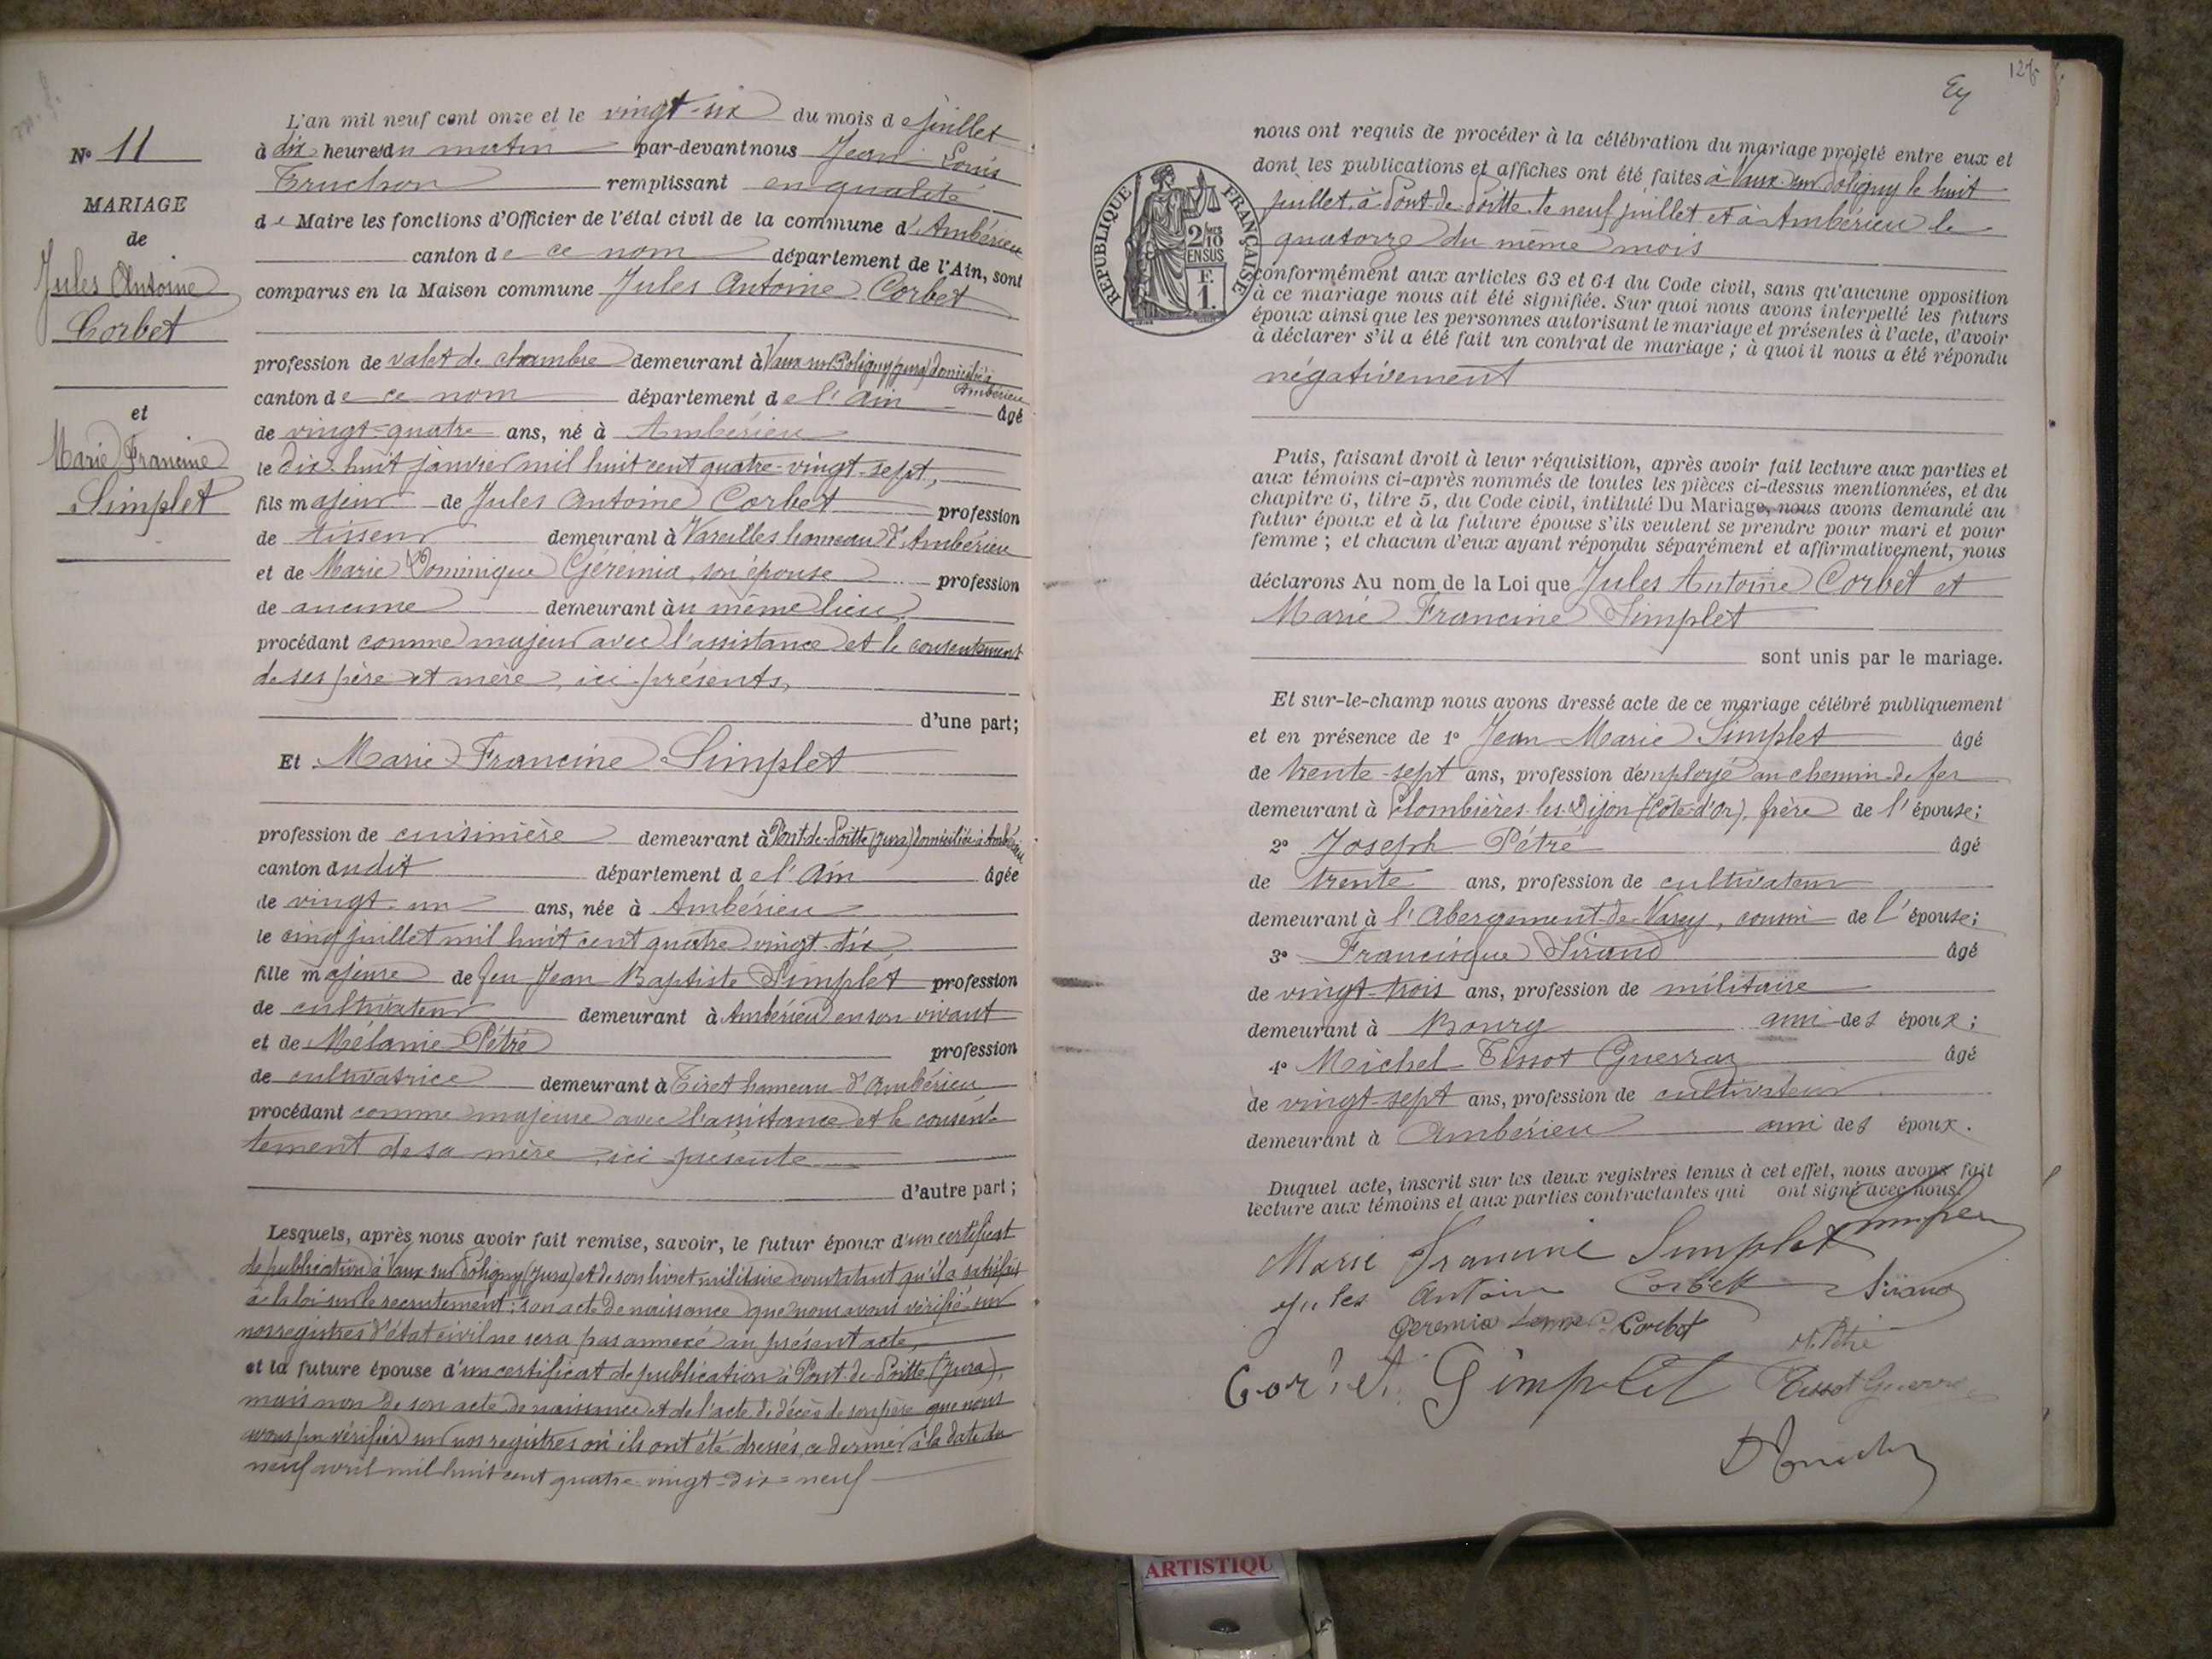 L'an mil neuf cent onze et le vingt-six du mois de juillet
à dix heures du matin par-devant nous Jean Louis
Truchon remplissant en qualité
de Maire les fonctions d'Officier de l'état civil de la commune d'Ambérieu
canton de ce nom département de l'Ain, sont
comparus en la Maison commune Jules Antoine Corbet
profession de valet de chambre demeurant à Vaux sur Poligny (Jura) domicilié à
Ambérieu
canton de ce nom département de l'Ain âgé
de vingt-quatre ans, né à Ambérieu
le dix-huit janvier mil huit cent quatre-vingt-sept,
fils majeur de Jules Antoine Corbet profession
de tisseur demeurant à Vareilles hameau d'Ambérieu
et de Marie Dominique Gérémia, son épouse profession
de aucune demeurant au même lieu
procédant comme majeur avec l'assistance et le consentement
de ses père et mère, ici présents,
d'une part;
Et Marie Francine Simplet
profession de cuisinière demeurant à Pont-de-Poitte (Jura) domiciliée à Ambérieu
canton dudit département de l'Ain âgée
de vingt-un ans, née à Ambérieu
le cinq juillet mil huit cent quatre-vingt-dix
fille majeure de feu Jean Baptiste Simplet profession
de cultivateur demeurant à Ambérieu en son vivant
et de Mélanie Pétré profession
de cultivatrice demeurant à Tiret hameau d'Ambérieu
procédant comme majeure avec l'assistance et le consen-
tement de sa mère, ici présente
d'autre part;
Lesquels, après nous avoir fait remise, savoir, le futur époux d'un certificat
de publication à Vaux sur Poligny (Jura) et de son livret militaire constatant qu'il a satisfait
à la loi sur le recrutement; son acte de naissance que nous avons vérifié sur
nos registres d'état civil ne sera pas annexé au présent acte,
et la future épouse d'un certificat de publication à Pont-de-Poitte (Jura),
mais non de son acte de naissance et de l'acte de décès de son père que nous
avons pu vérifier sur nos registres où ils ont été dressés, ce dernier à la date du
neuf avril mil huit cent quatre-vingt-dix-neuf
N° 11
MARIAGE
de
Jules Antoine
Corbet
et
Marie Francine
Simplet
nous ont requis de procéder à la célébration du mariage projeté entre eux et
dont les publications et affiches ont été faites à Vaux-sur-Poligny le huit
juillet, à Pont-de-Poitte le neuf juillet et à Ambérieu le
quatorze du même mois
conformément aux articles 63 et 64 du Code civil, sans qu'aucune opposition
à ce mariage nous ait été signifiée. Sur quoi nous avons interpellé les futurs
époux ainsi que les personnes autorisant le mariage et présentes à l'acte, d'avoir
à déclarer s'il a été fait un contrat de mariage; à quoi il nous a été répondu
négativement
Puis, faisant droit à leur réquisition, après avoir fait lecture aux parties et
aux témoins ci-après nommés de toutes les pièces ci-dessus mentionnées, et du
chapitre 6, titre 5, du Code civil, intitulé Du Mariage, nous avons demandé au
futur époux et à la future épouse s'ils veulent se prendre pour mari et pour
femme; et chacun d'eux ayant répondu séparément et affirmativement, nous
déclarons Au nom de la Loi que Jules Antoine Corbet et
Marie Francine Simplet
sont unis par le mariage.
Et sur-le-champ nous avons dressé acte de ce mariage célébré publiquement
et en présence de 1° Jean Marie Simplet âgé
de trente-sept ans, profession d'employé au chemin de fer
demeurant à Plombières-les-Dijon (Côte-d'Or), frère de l'épouse;
2° Joseph Pétré âgé
de trente ans, profession de cultivateur
demeurant à l'Abergement-de-Varey, cousin de l'épouse;
3° Francisque Sirand âgé
de vingt-trois ans, profession de militaire
demeurant à Bourg ami des époux;
4° Michel Tissot Guerraz âgé
de vingt-sept ans, profession de cultivateur
demeurant à Ambérieu ami des époux.
Duquel acte, inscrit sur les deux registres tenus à cet effet, nous avons fait
lecture aux témoins et aux parties contractantes qui ont signé avec nous.
Marie Francine Simplet
Jules Antoine Corbet Sirand
Geremia Corbet
Corbet Simplet
RÉPUBLIQUE FRANÇAISE
2/10
EN SUS
F.
1.
ARTISTIQU